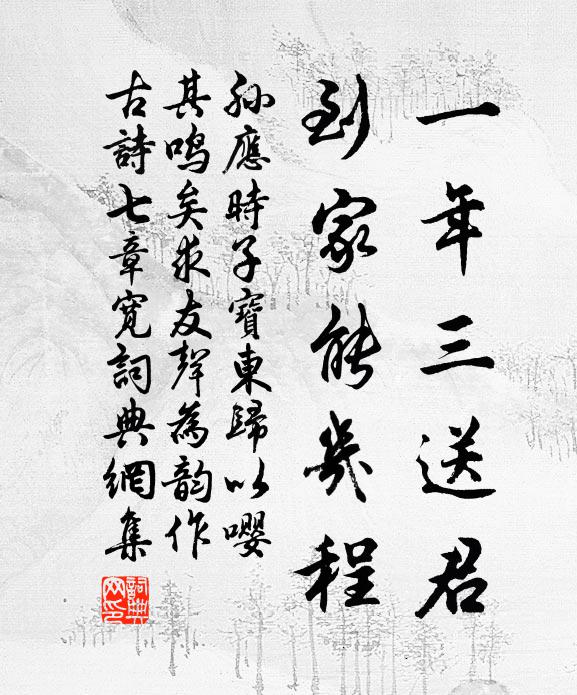 一年三送君
到家能幾程
孫應時子寶東歸以嚶
其鳴矣求友聲為韵作
古詩七章寬詞典網集
詞典網印